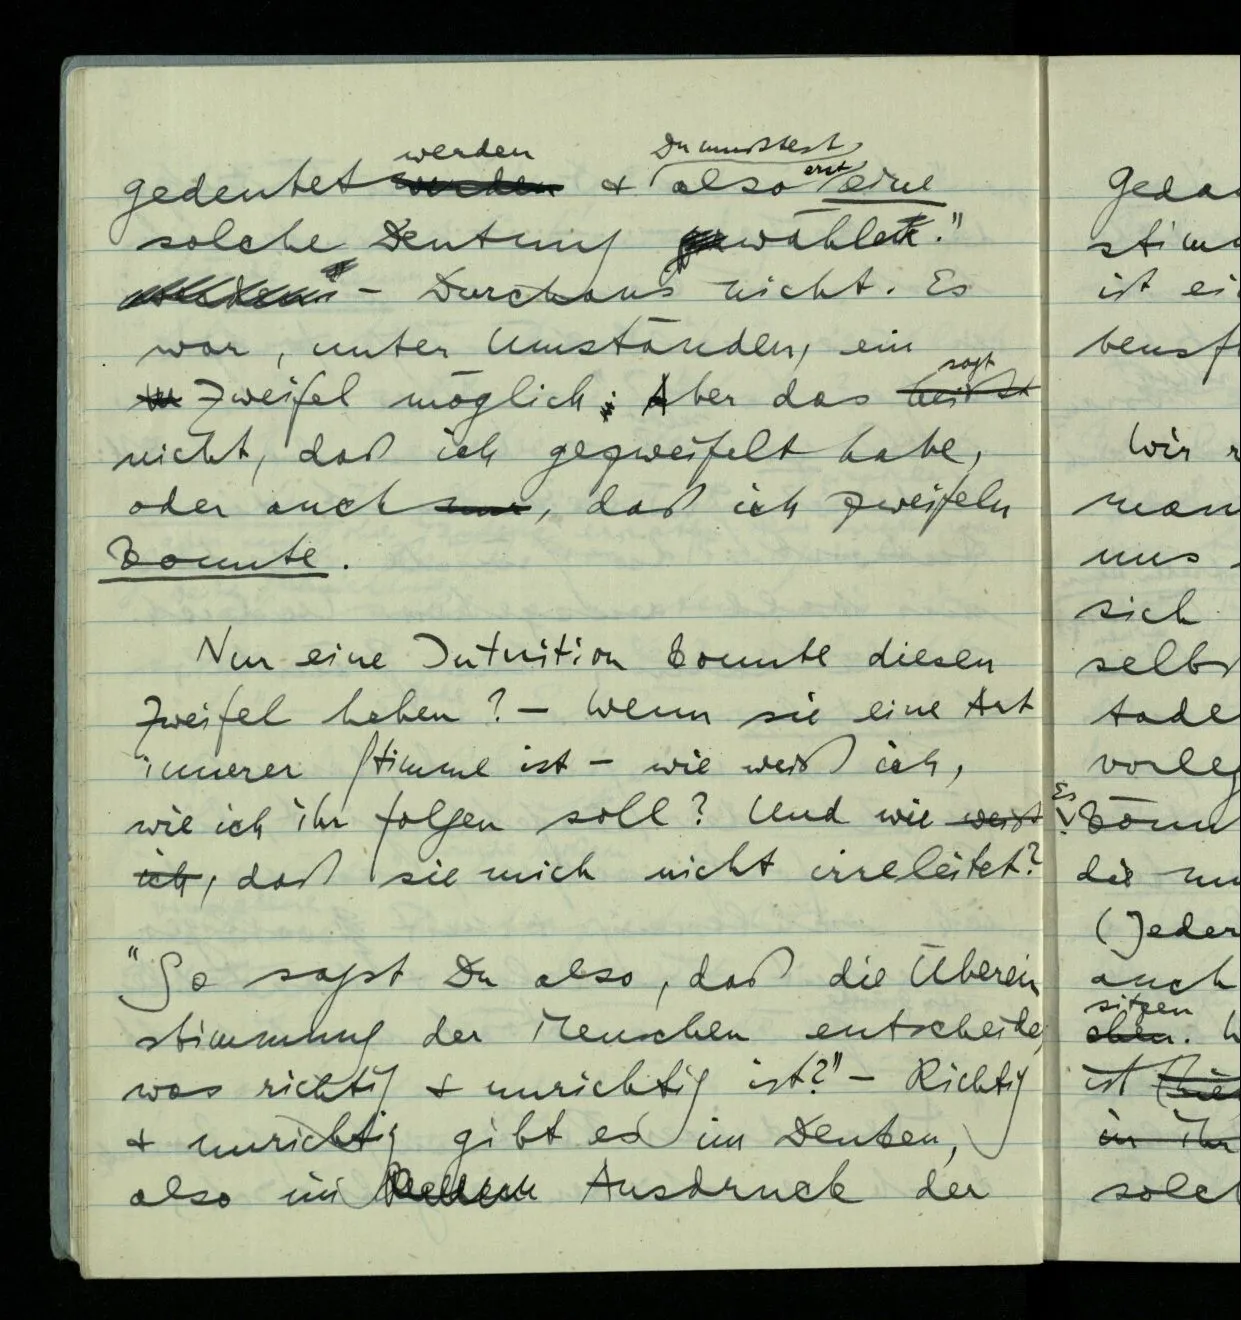 werden Du mußtest
gedeutet werden & also erst eine
solche Deutung wählen."
– Durchaus nicht. Es
war, unter Umständen, ein
Zweifel möglich; Aber das sagt heißt
nicht, daß ich gezweifelt habe,
oder auch nur, daß ich zweifeln
konnte.
Nur eine Intuition konnte diesen
Zweifel heben? – Wenn sie eine Art
innerer Stimme ist – wie weiß ich,
wie ich ihr folgen soll? Und wie weiß
ich, daß sie mich nicht irreleitet?
"So sagst Du also, daß die Überein
stimmung der Menschen entscheide,
was richtig & unrichtig ist?" – Richtig
& unrichtig gibt es im Denken,
also im Ausdruck der
Geda
stim
ist ei
bensf
Wir
man
uns
sich
selbs
tade
vorleg
Es
könn
die
(Jeder
auch
sitzen
ist
in ihr
solch